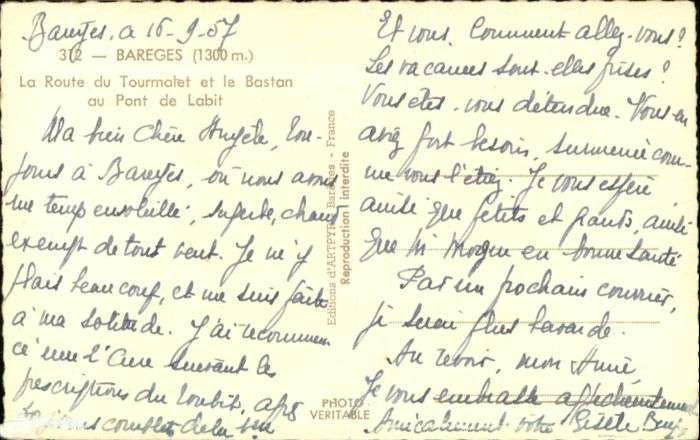 Barèges, a 16-9-57
312 — BAREGES (1300 m.)
La Route du Tourmalet et le Bastan
au Pont de Labit
Ma bien Chère Angèle, tou-
jours à Barèges, où nous avons
une temp ensoleillé, superbe, chaud
exempt de tout vent. Je m'y
plais beaucoup, et me suis faite
à ma solitude. J'ai recommen
cé une Cure suivant les
prescriptions du
jours complet de la
Editions d'ARTPYR Barèges - France
Reproduction interdite
PHOTO
VERITABLE
Et vous, Comment allez-vous ?
Les vacances sont-elles prises ?
Vous êtes-vous détendue. Vous en
avez fort besoin, surmenée com-
me vous l'étiez. Je vous espère
ainsi que petits et grands, ainsi
que en bonne santé
Par un prochain courrier,
je serai plus bavarde.
Au revoir, mon Amie,
Je vous embrasse affectueusement
Amicalement vôtre Gisèle